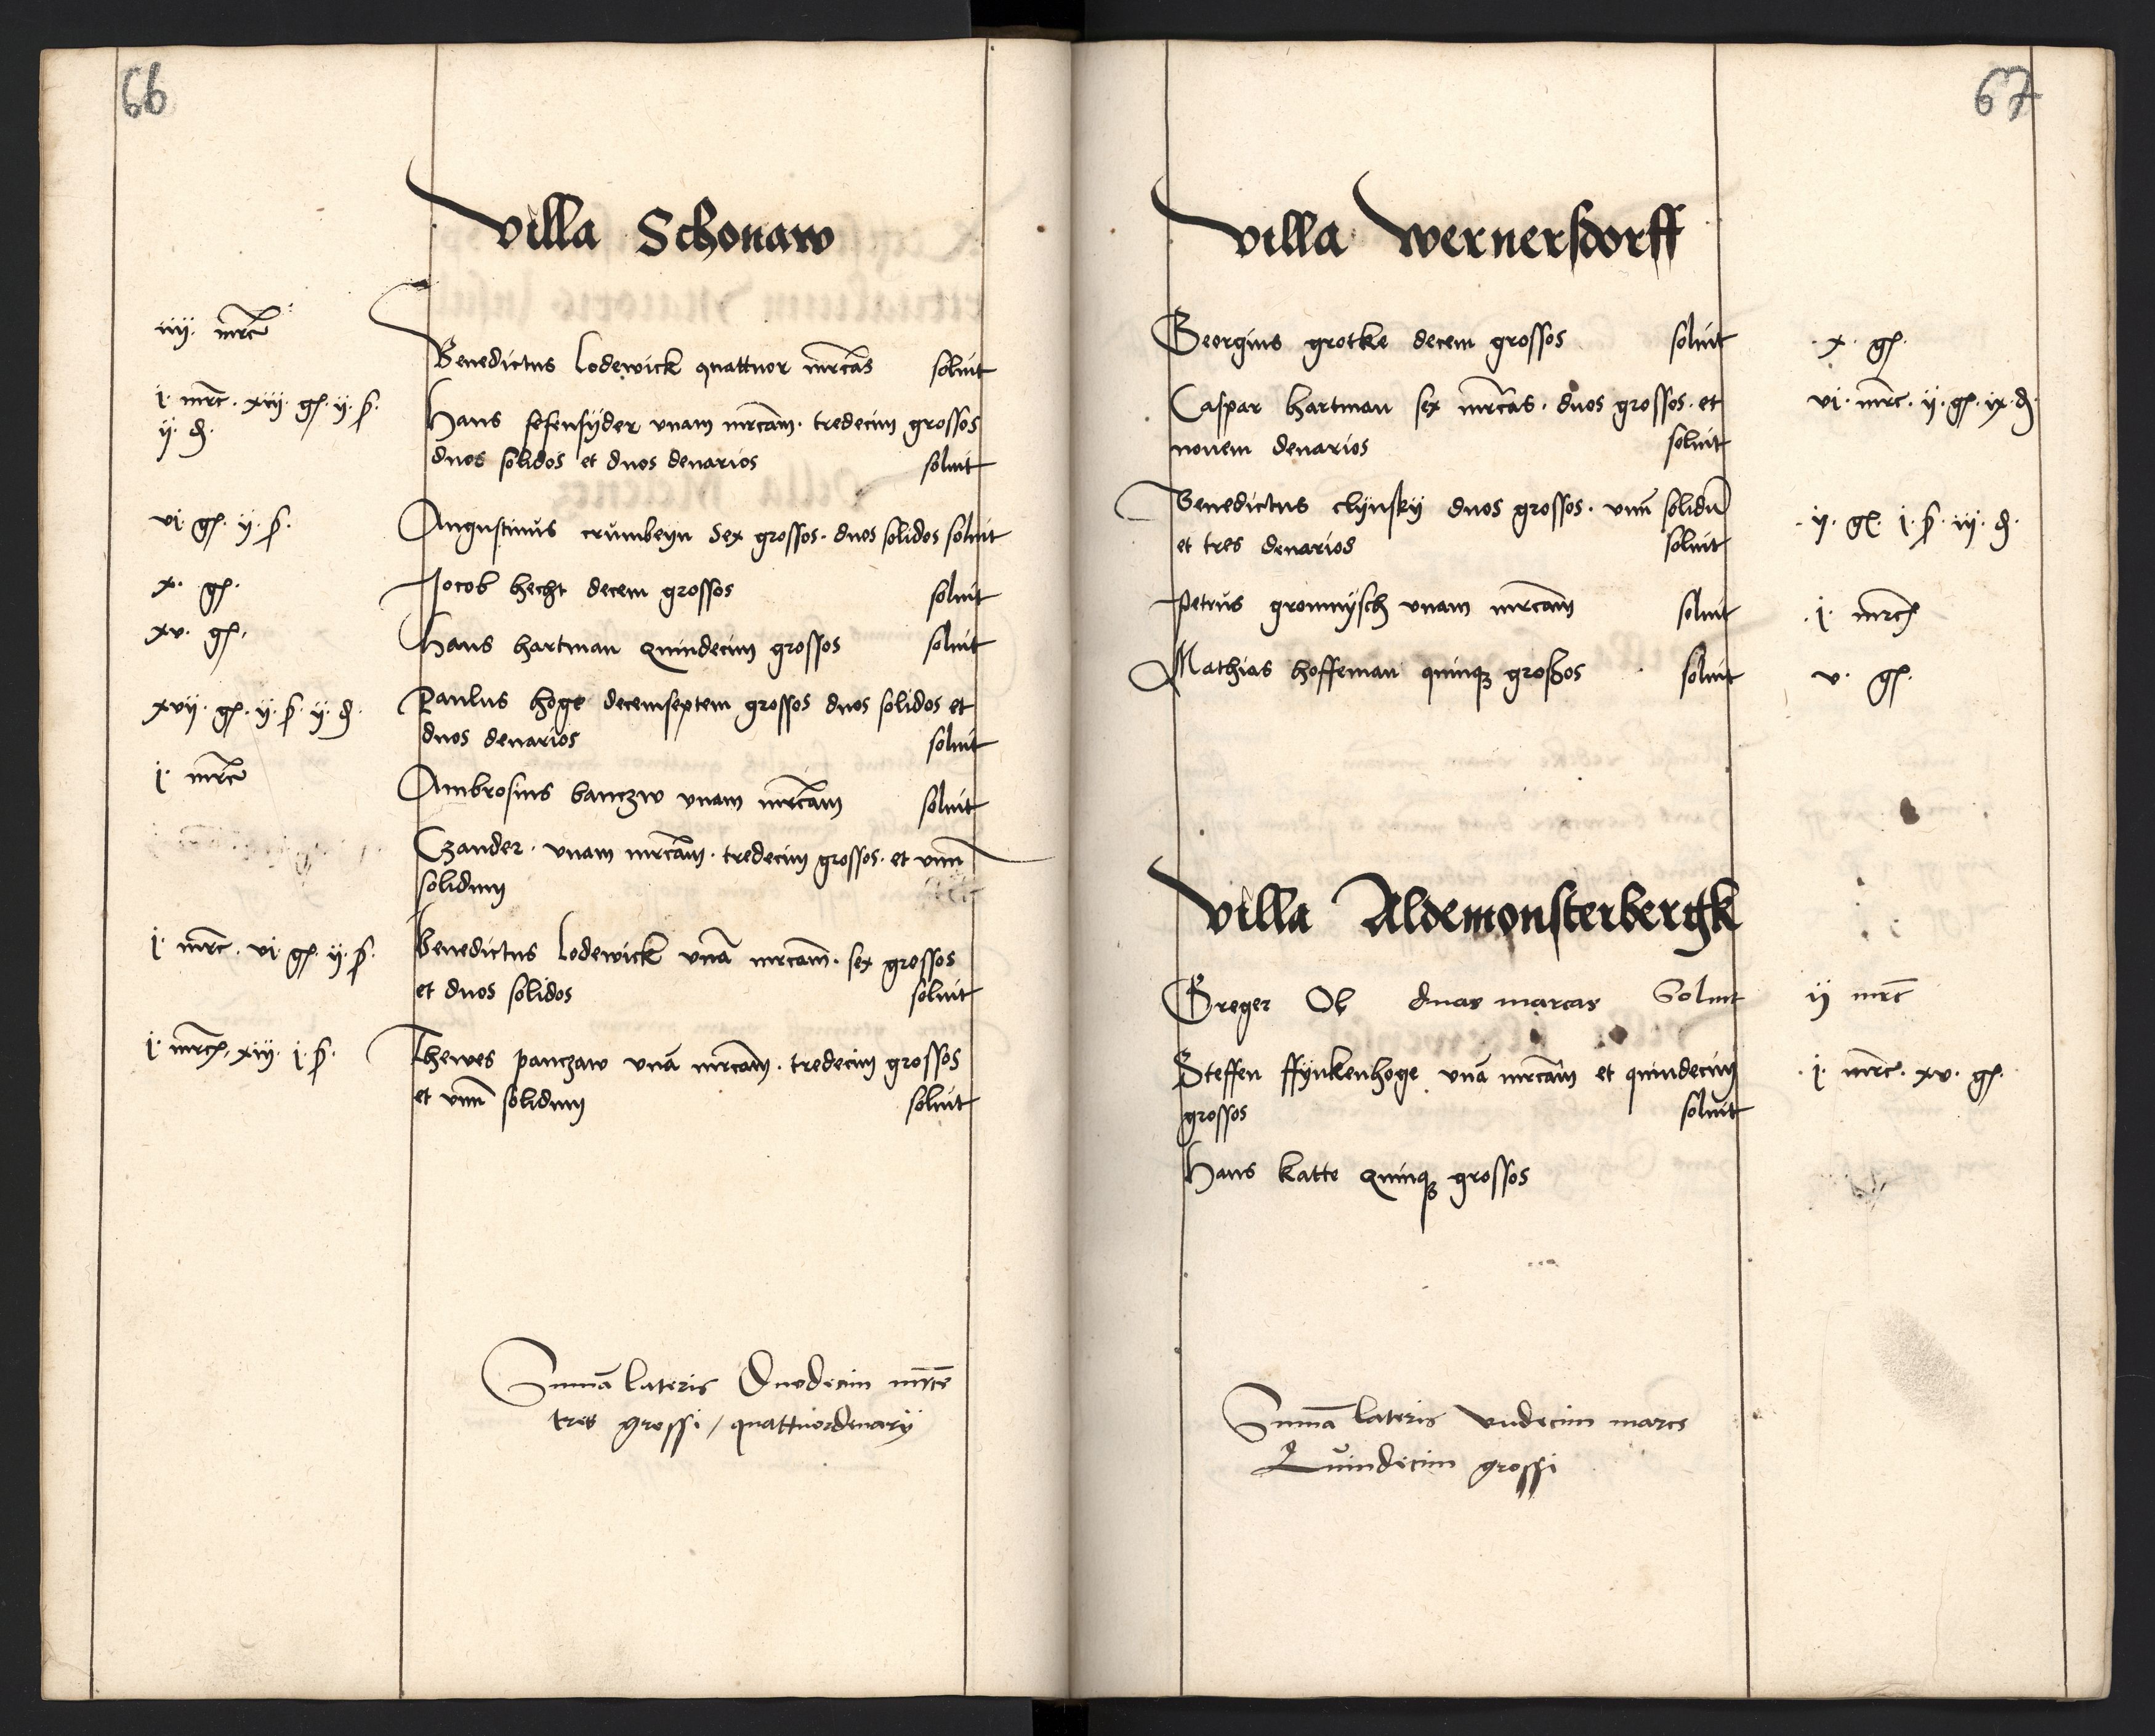 66
villa Schonaw
iiij. mrc
Benedictus Lodewick quattuor mrcas soluit
i. mrc. xiij. gr. ij. s.
ij. d.
Hans sesensyder vnam mrcam. tredecim grossos
duos solidos et duos denarios soluit
vi. gr. ij. s.
Augustinus crumbeyn Sex grossos. duos solidos soluit
x. gr.
Jocob hecht decem grossos soluit
xv. gr.
Hans hartman Quindecim grossos soluit
xvij. gr. ij. s. ij. d.
Paulus hoge decemseptem grossos duos solidos et
duos denarios soluit
i. mrc
Ambrosius banczw vnam mrcam soluit
Czander. vnam mrcam. tredecim grossos. et vnum
solidum
i. mrc. vi. gr. ij. s.
Benedictus Lodewick vnā mrcam. sex grossos
et duos solidos soluit
i. mrc. xiij. i. s.
Thewes panczaw vnā mrcam. tredecim grossos
et vnū solidum soluit
Sumā lateris Duodecim mrce
tres grossi / quattuordenarij
67
villa wernersdorff
Georgius grotke decem grossos soluit
x. gr.
Caspar hartman sex mrcas. duos grossos. et
vi. mrc. ij. gr. ix. d.
nouem denarios soluit
Benedictus clynsky duos grossos. vnū solidū
ij. gr. i. s. iij. d.
et tres denarios soluit
Petrus gronnysch vnam mrcam soluit
i. mrc
Mathias hoffeman quinqꝫ großos soluit
v. gr.
villa Aldemonsterbergk
Greger Ol duas marcas Soluit
ij mrc
Steffen ffynkenhoge vnā mrcam et quindecim
i. mrc. xv. gr.
grossos soluit
Hans katte Quinqꝫ grossos
Sumā lateris vndecim marce
Quindecim grossi